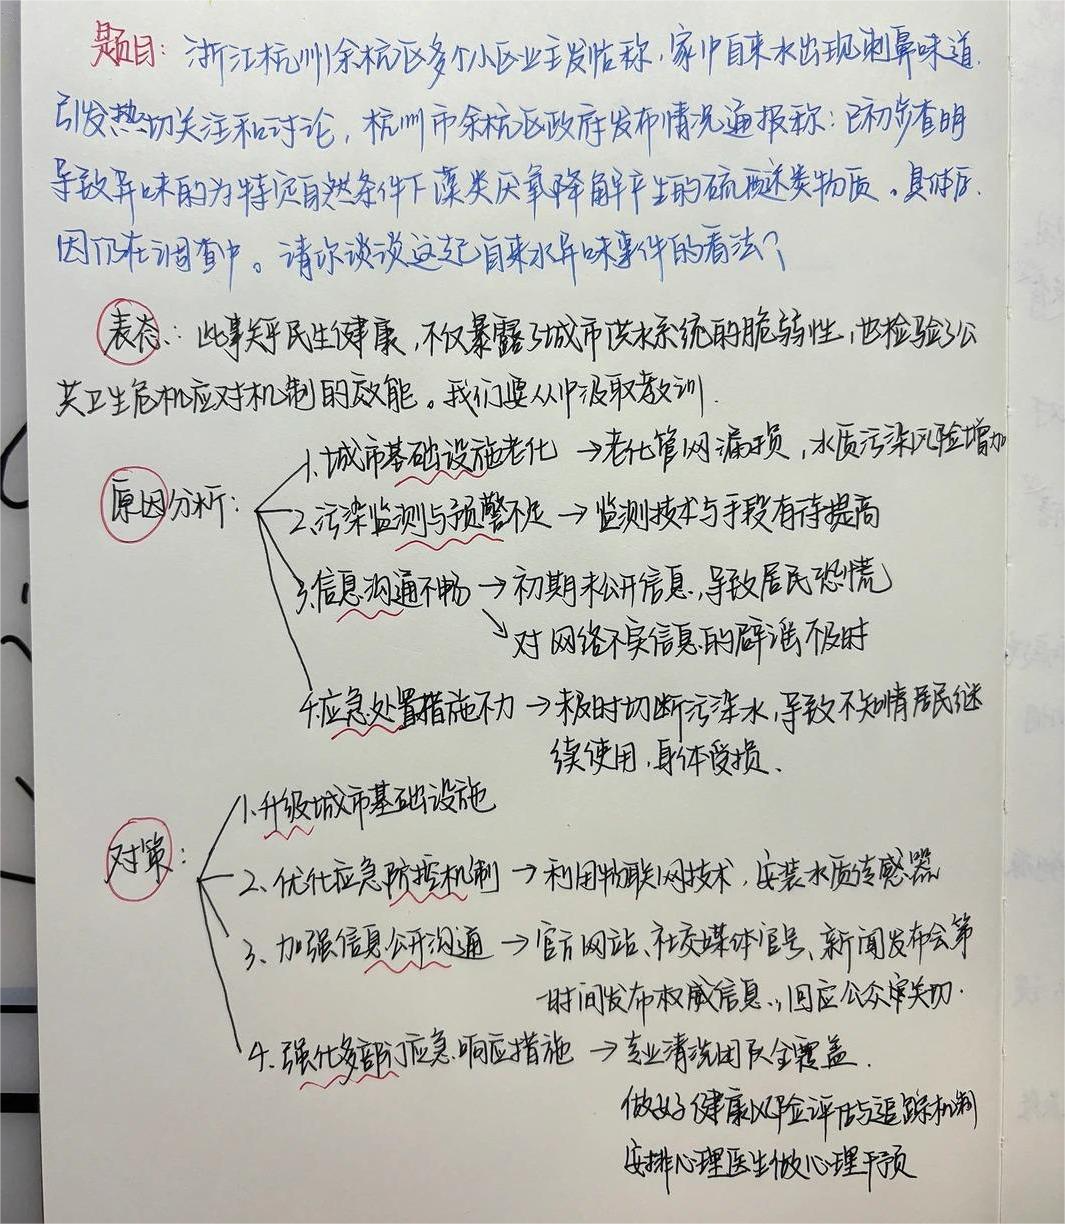 题目: 浙江杭州余杭区多个小区业主发帖称,家中自来水出现刺鼻味道.
引发热切关注和讨论,杭州市余杭区政府发布情况通报称:已初步查明
导致异味的为特定自然条件下藻类厌氧降解产生的硫醚类物质。具体原
因仍在调查中。请你谈谈这起自来水异味事件的看法?
表态: 此事关乎民生健康,不仅暴露了城市供水系统的脆弱性,也检验了公
共卫生危机应对机制的效能。我们要从中汲取教训.
原因分析:
1.城市基础设施老化 →老化管网漏损,水质污染风险增加
2.污染监测与预警不足 → 监测技术与手段有待提高
3.信息沟通不畅 → 初期未公开信息,导致居民恐慌
↘对网络不实信息的辟谣不及时
4.应急处置措施不力 → 未及时切断污染水,导致不知情居民继
续使用,身体受损.
对策:
1.升级城市基础设施
2、优化应急防控机制 → 利用物联网技术,安装水质传感器
3、加强信息公开沟通 → 官方网站、社交媒体官号、新闻发布会第
一时间发布权威信息.,回应公众关切.
4.强化多部门应急响应措施 → 专业清洗团队全覆盖.
做好健康风险评估与追踪机制
安排心理医生做心理干预